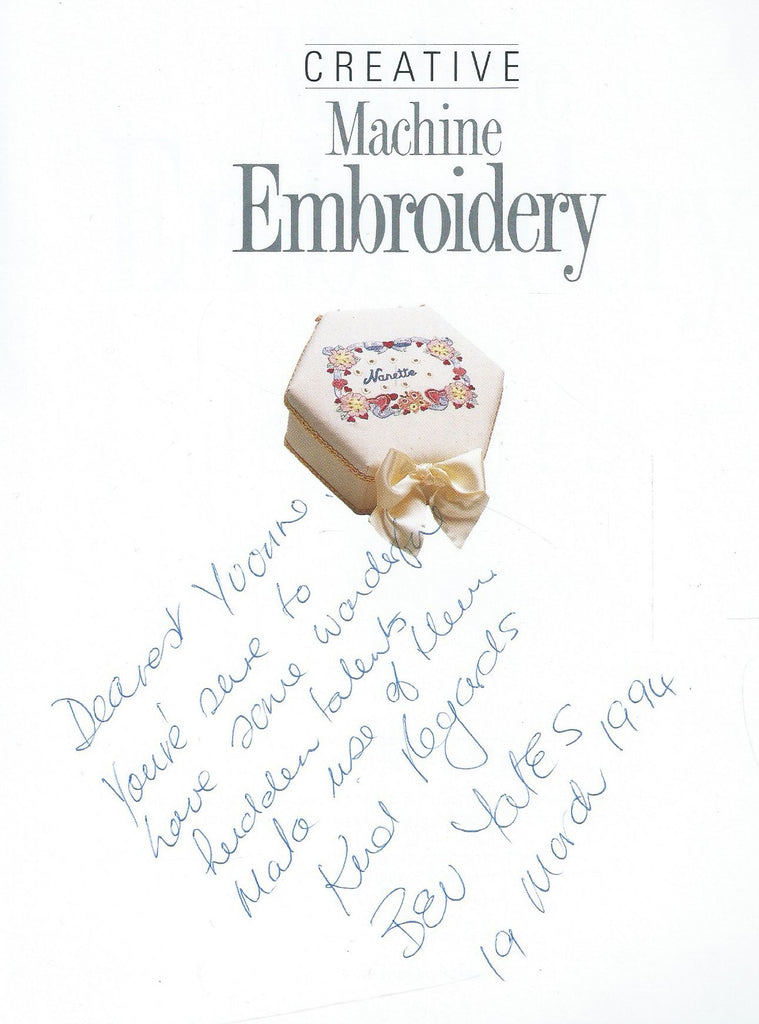 CREATIVE
Machine
Embroidery
Nanette
Dearest Yvonne
You're sure to
have some wonderful
hidden talents
Make use of them
Kind Regards
BEV YATES
19 March 1994